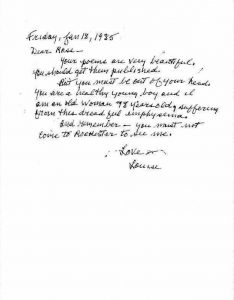 Friday, Jan 18, 1985
Dear Rose —
Your poems are very beautiful,
you should get them published.
But you must be out of your head.
You are a healthy young boy and I
am an old woman 98 years old, suffering
from this dreadful emphysema.
And remember — you must not
come to Rochester to see me.
Love —
Louise